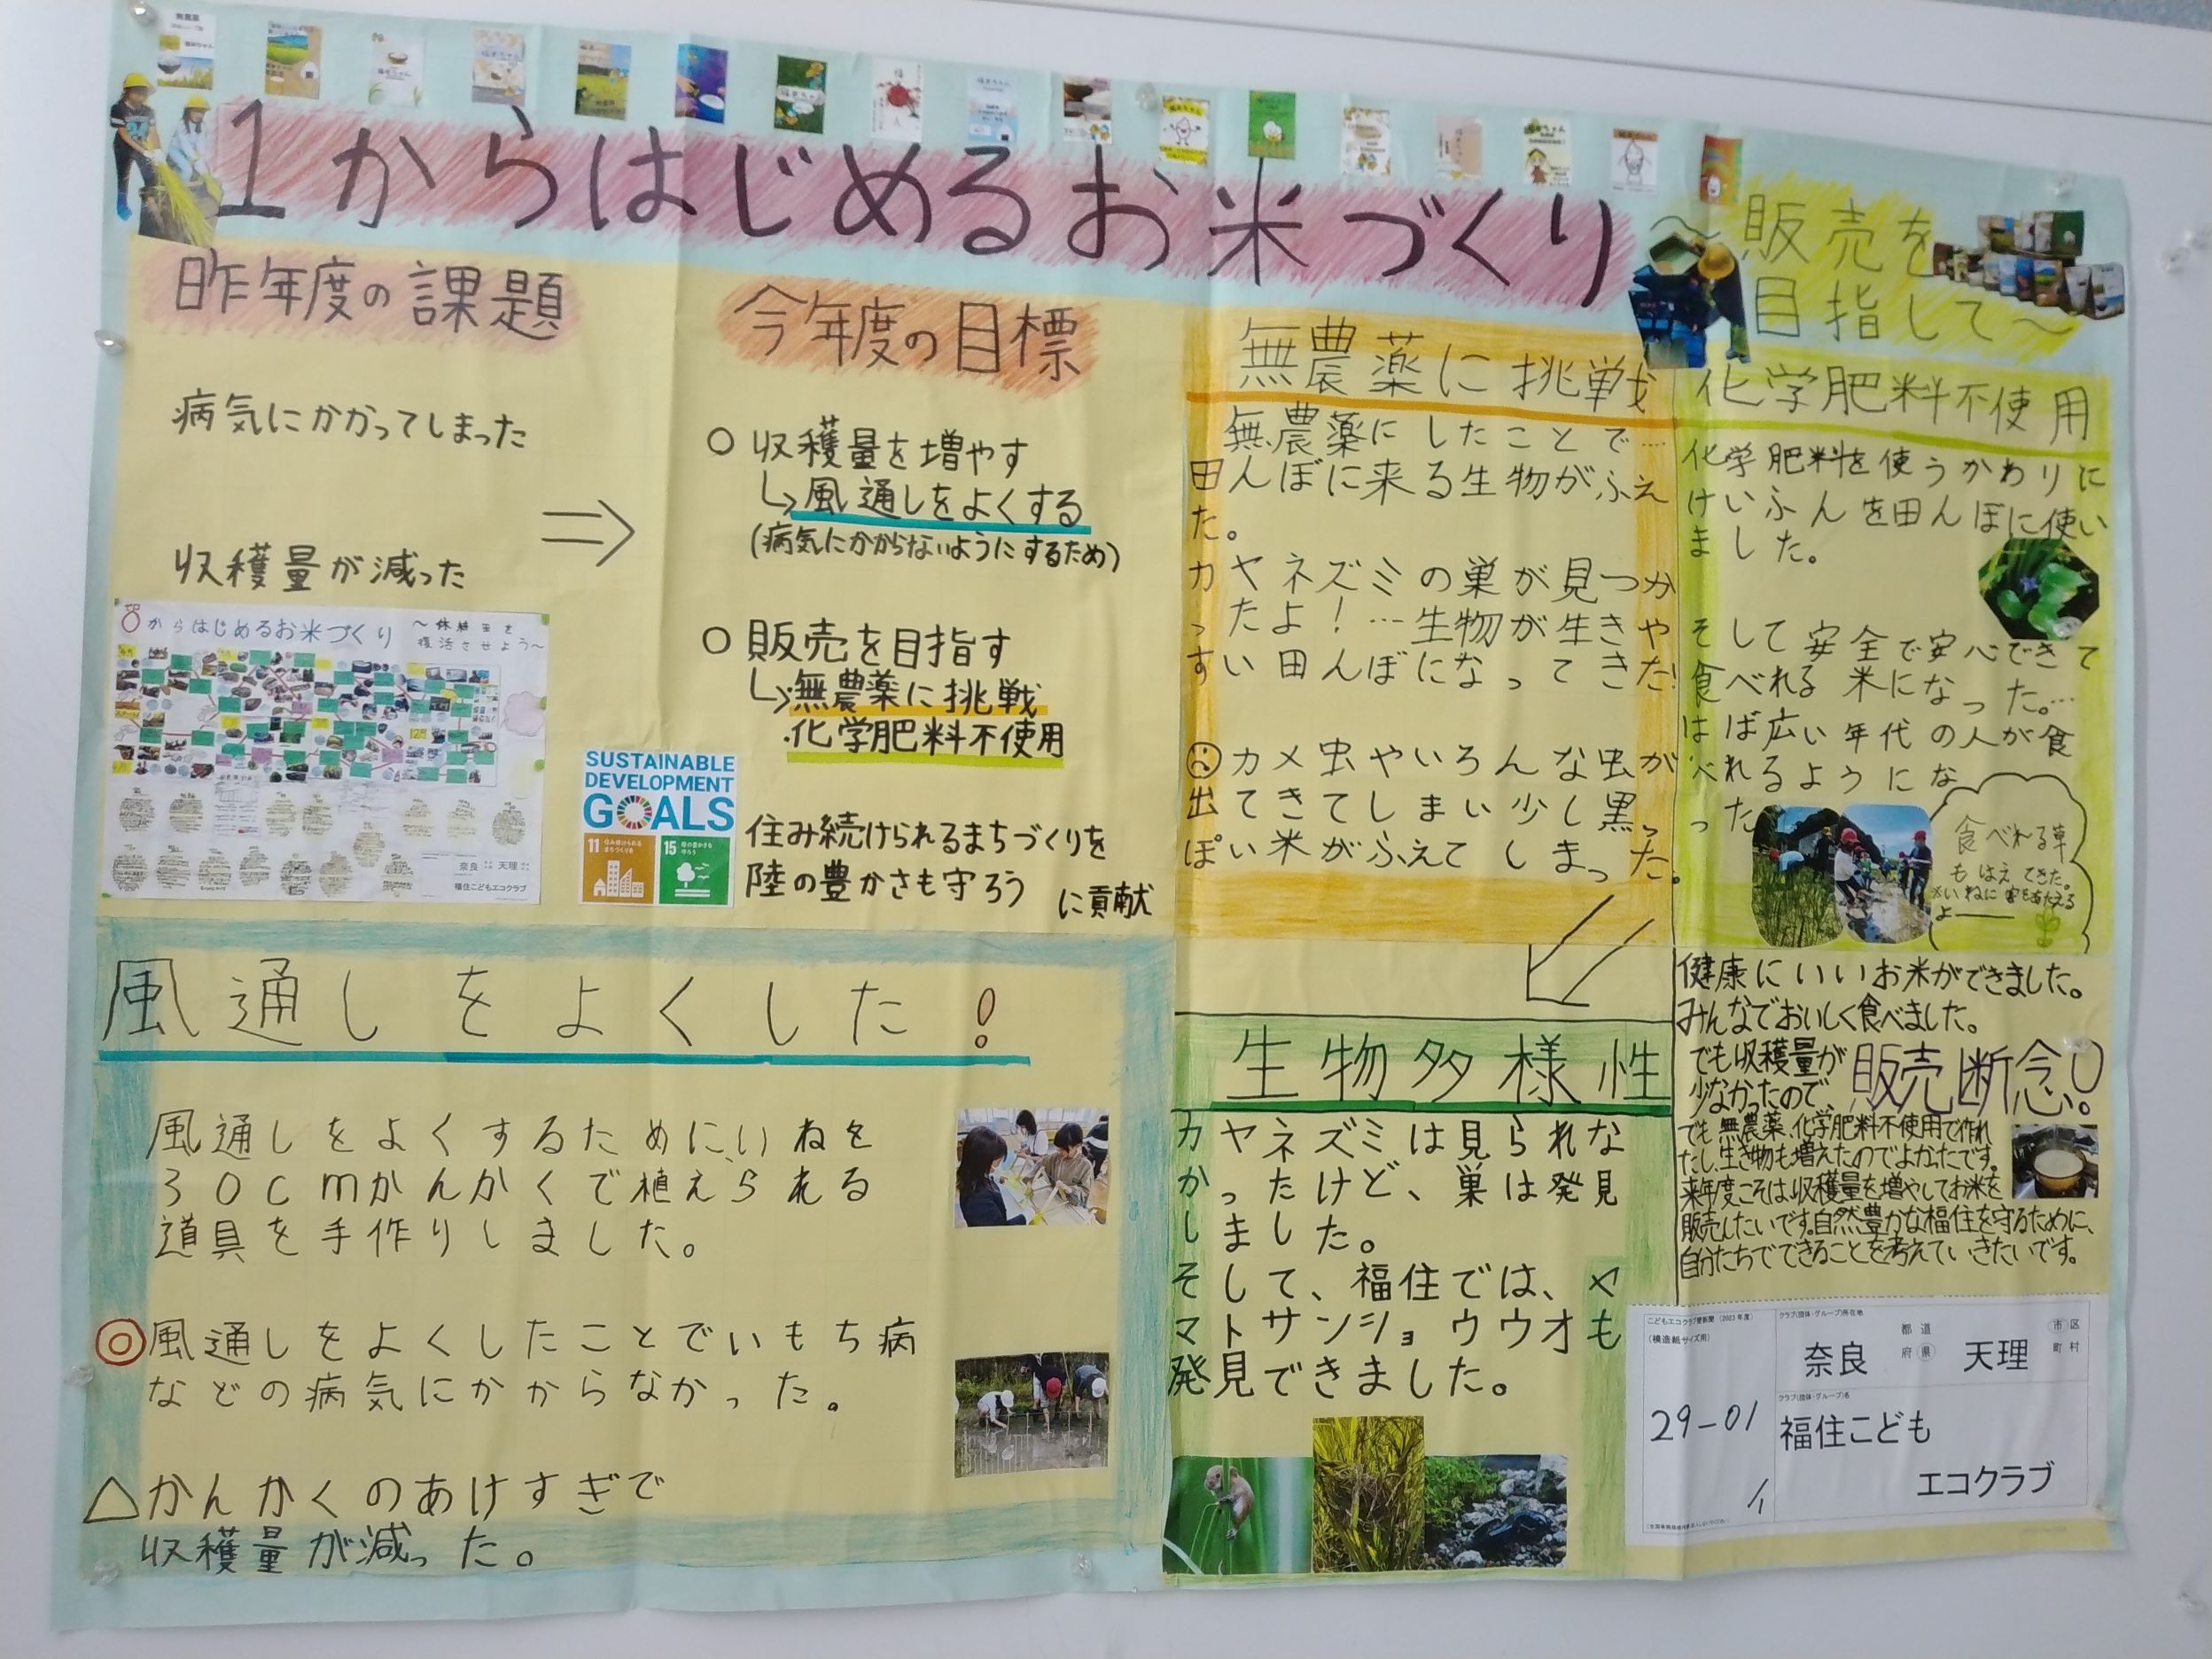 1からはじめるお米づくり
～販売を
目指して～
昨年度の課題
病気にかかってしまった
収穫量が減った
⇒
0からはじめるお米づくり
～体験田を
復活させよう～
奈良
天理
福住こどもエコクラブ
今年度の目標
○ 収穫量を増やす
↳風通しをよくする
(病気にかからないようにするため)
○ 販売を目指す
↳・無農薬に挑戦
・化学肥料不使用
SUSTAINABLE
DEVELOPMENT
GOALS
11 住み続けられる
まちづくりを
15 陸の豊かさも
守ろう
住み続けられるまちづくりを
陸の豊かさも守ろう
に貢献
無農薬に挑戦
無農薬にしたことで…
田んぼに来る生物がふえ
た。
カヤネズミの巣が見つか
ったよ！…生物が生きや
すい田んぼになってきた!
☹カメ虫やいろんな虫が
出てきてしまい少し黒っ
ぽい米がふえてしまった。
化学肥料不使用
化学肥料を使うかわりに
けいふんを田んぼに使い
ました。
そして安全で安心できて
食べれる米になった。…
はば広い年代の人が食
べれるようにな
った
食べれる草
もはえてきた。
※いねに害をあたえる
よ―
風通しをよくした！
風通しをよくするためにいねを
30cmかんかくで植えられる
道具を手作りしました。
◎風通しをよくしたことでいもち病
などの病気にかからなかった。
△かんかくのあけすぎで
収穫量が減った。
生物多様性
カヤネズミは見られな
かったけど、巣は発見
しました。
そして、福住では、ヤ
マトサンショウウオも
発見できました。
健康にいいお米ができました。
みんなでおいしく食べました。
でも収穫量が
少なかったので、
販売断念！
でも無農薬、化学肥料不使用で作れ
たし、生き物も増えたのでよかったです。
来年度こそは、収穫量を増やしてお米を
販売したいです。自然豊かな福住を守るために、
自分たちでできることを考えていきたいです。
こどもエコクラブ壁新聞（2023年度）
（模造紙サイズ用）
29-01
クラブ(団体・グループ)所在地
奈良
都 道
府 県
天理
市 区
町 村
クラブ(団体・グループ)名
福住こども
エコクラブ